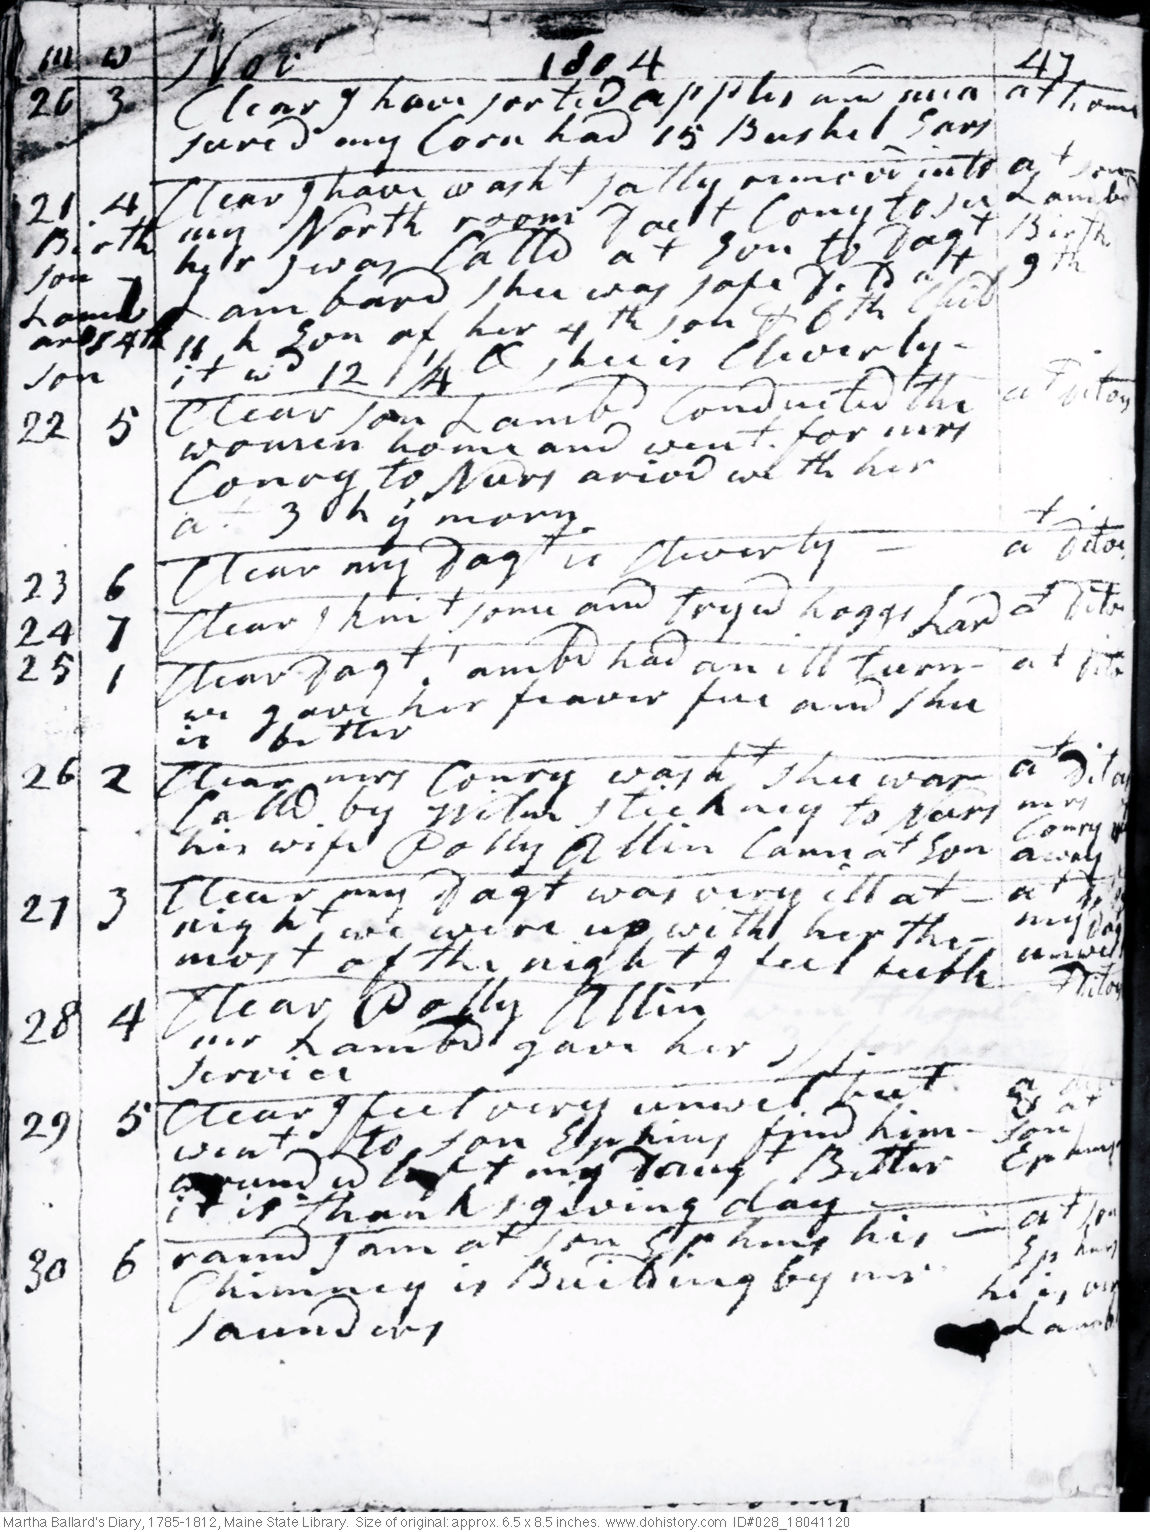 m w Nov 1804 47
20 3 Clear I have sorted apples and mea at home
sured my Corn had 15 Bushel Ears
21 4 Clear I have washt Sally removd into at son
my North room Dact Cony to see Lambd
Birth her I was Calld at Evn to Dagt Birth
son Lambard shee was safe Deld at 9th
Lambd 11 h Evn of her 4th son & 6th Child
ars 4th it wd 12 1/4 lb shee is Cleverly -
son
22 5 Clear son Lambd Conducted the at Ditos
women home and went for mrs
Conry to Nurs arivd with her
at 3 h y morn
23 6 Clear my Dagt is Cleverly - at Ditos
24 7 Clear I knit some and tryed hoggs Lard at Ditos
25 1 Clear Dagt Lambd had an ill turn - at Dito
we gave her feaver fue and shee
is better
26 2 Clear mrs Conry washt shee was at Ditos
Calld by Wilm Stickney to Nurs mrs
his wife Polly Allin Came at Evn Conry
away
27 3 Clear my Dagt was very ill at - at Ditos
night we were up with her the - my Dag
most of the night I feel feeble unwell
28 4 Clear Polly Allin Ditos
mr Lambd gave her for
service
29 5 Clear I feel very unwel but
went to son Ephms find him - son at
wounded left my Daugt Better Ephms
it is thanksgiving day
30 6 raind I am at son Ephms his - at son
Chimney is Building by mr Ephms
Saunders he is
Lambd
Martha Ballard's Diary, 1785-1812, Maine State Library. Size of original: approx. 6.5 x 8.5 inches. www.dohistory.com ID#028_18041120